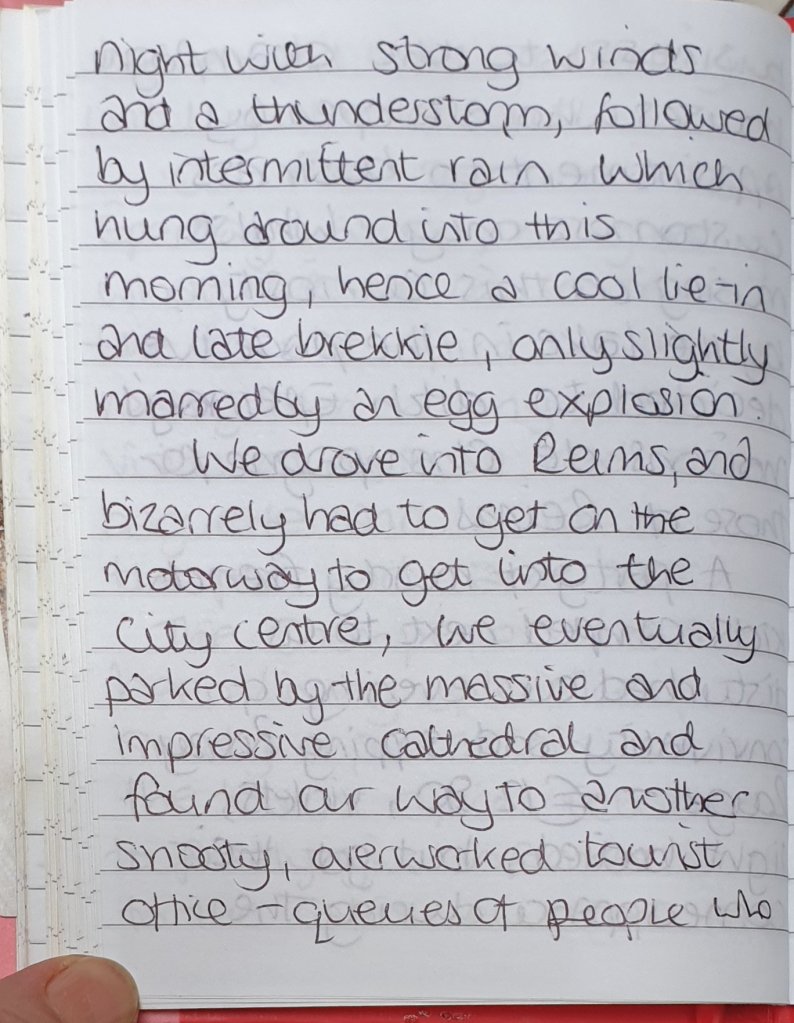 night with strong winds
and a thunderstorm, followed
by intermittent rain which
hung around into this
morning, hence a cool lie-in
and late brekkie, only slightly
marred by an egg explosion.
We drove into Reims, and
bizarrely had to get on the
motorway to get into the
city centre, we eventually
parked by the massive and
impressive cathedral and
found our way to another
snooty, overworked tourist
office - queues of people who